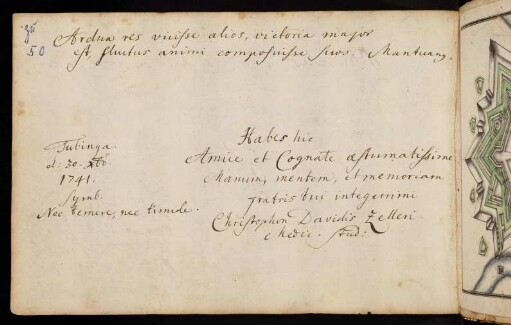 50
Ardua res vicisse alios, victoria major
est, fluctus animi composuisse suos. Mantuang.
Habes hic
Amice et Cognate æstumatissime
Manum, mentem, et memoriam
fratris tui integerrimi
Christophori Davidis Zelleri
Medic. Stud:
Tubinga
d. 30. Xbr.
1741.
Symb.
Nec temere, nec timide.